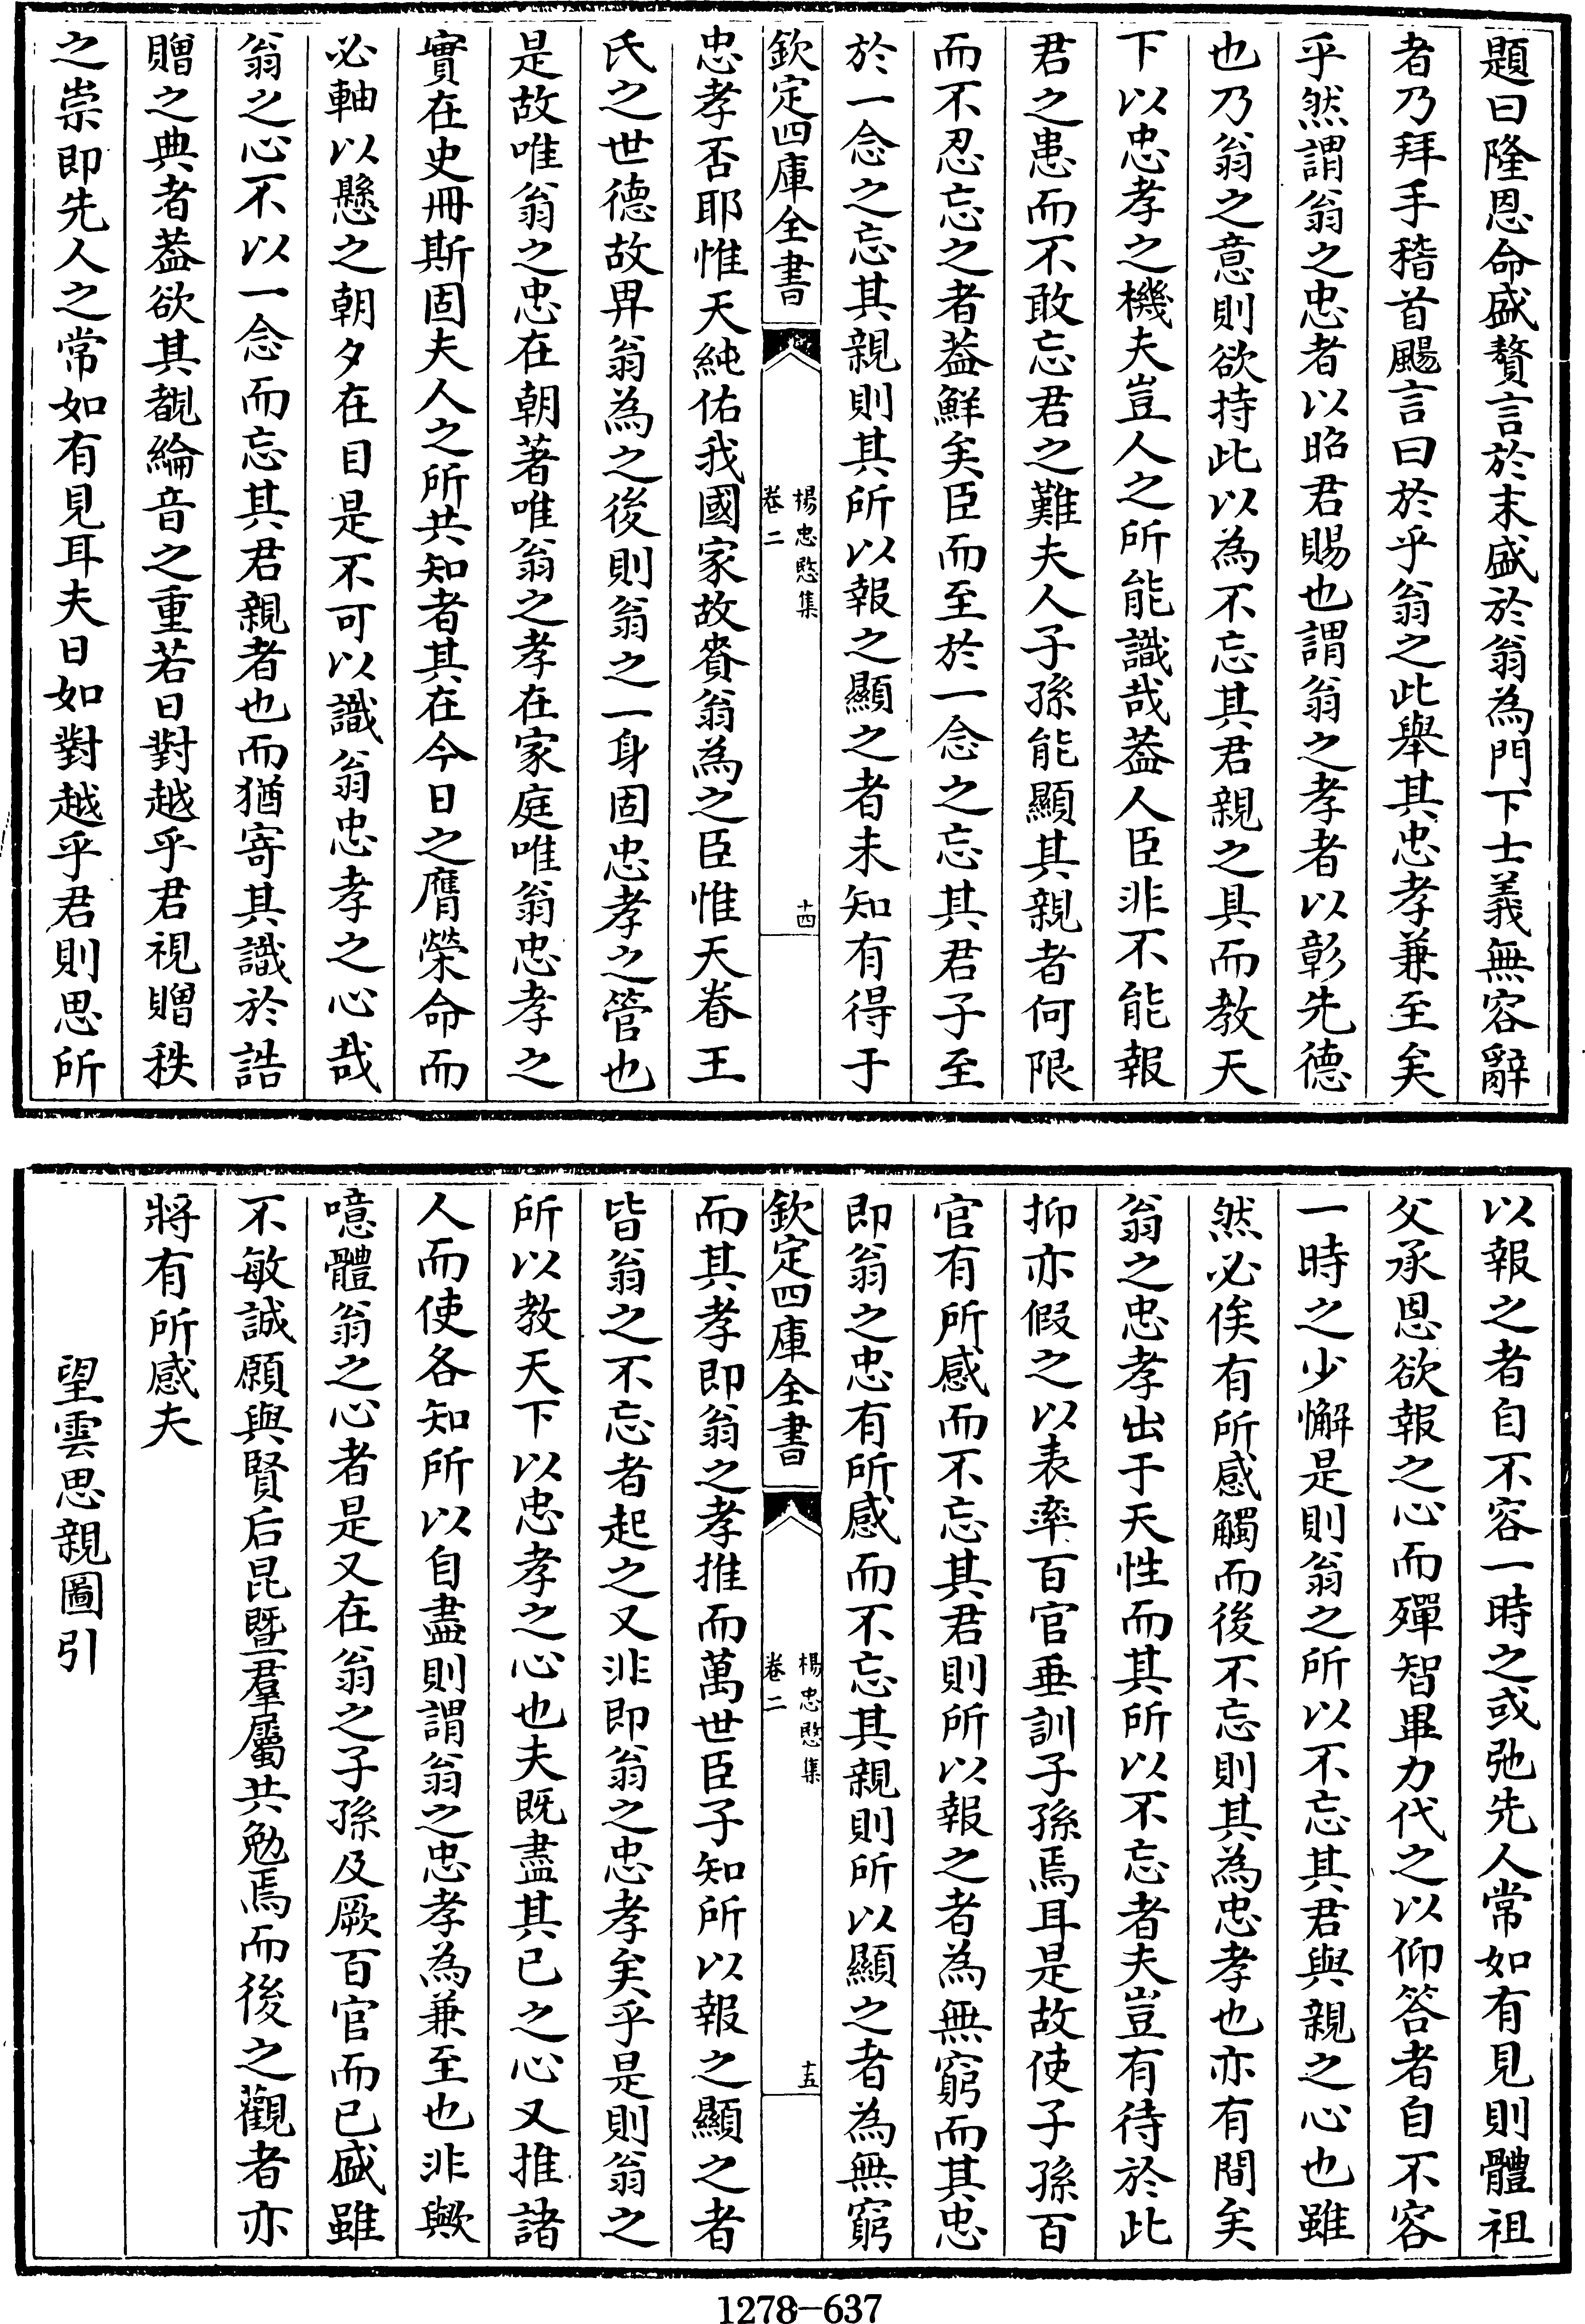 題曰隆恩命盛贅言於末盛於翁為門下士義無容辭
者乃拜手稽首颺言曰於乎翁之此舉其忠孝兼至矣
乎然謂翁之忠者以昭君賜也謂翁之孝者以彰先德
也乃翁之意則欲持此以為不忘其君親之具而教天
下以忠孝之機夫豈人之所能識哉葢人臣非不能報
君之患而不敢忘君之難夫人子孫能顯其親者何限
而不忍忘之者葢鮮矣臣而至於一念之忘其君子至
於一念之忘其親則其所以報之顯之者未知有得于
欽定四庫全書
楊忠愍集
卷二
十四
忠孝否耶惟天純佑我國家故賚翁為之臣惟天眷王
氏之世德故畀翁為之後則翁之一身固忠孝之管也
是故唯翁之忠在朝著唯翁之孝在家庭唯翁忠孝之
實在史冊斯固夫人之所共知者其在今日之膺榮命而
必軸以懸之朝夕在目是不可以識翁忠孝之心哉
翁之心不以一念而忘其君親者也而猶寄其識於誥
贈之典者葢欲其覩綸音之重若日對越乎君視贈秩
之崇即先人之常如有見耳夫日如對越乎君則思所
以報之者自不容一時之或弛先人常如有見則體祖
父承恩欲報之心而殫智畢力代之以仰答者自不容
一時之少懈是則翁之所以不忘其君與親之心也雖
然必俟有所感觸而後不忘則其為忠孝也亦有間矣
翁之忠孝出于天性而其所以不忘者夫豈有待於此
抑亦假之以表率百官垂訓子孫焉耳是故使子孫百
官有所感而不忘其君則所以報之者為無窮而其忠
即翁之忠有所感而不忘其親則所以顯之者為無窮
欽定四庫全書
楊忠愍集
卷二
十五
而其孝即翁之孝推而萬世臣子知所以報之顯之者
皆翁之不忘者起之又非即翁之忠孝矣乎是則翁之
所以教天下以忠孝之心也夫既盡其已之心又推諸
人而使各知所以自盡則謂翁之忠孝為兼至也非歟
噫體翁之心者是又在翁之子孫及厥百官而已盛雖
不敏誠願與賢后昆暨羣屬共勉焉而後之觀者亦
將有所感夫
望雲思親圖引
1278—637